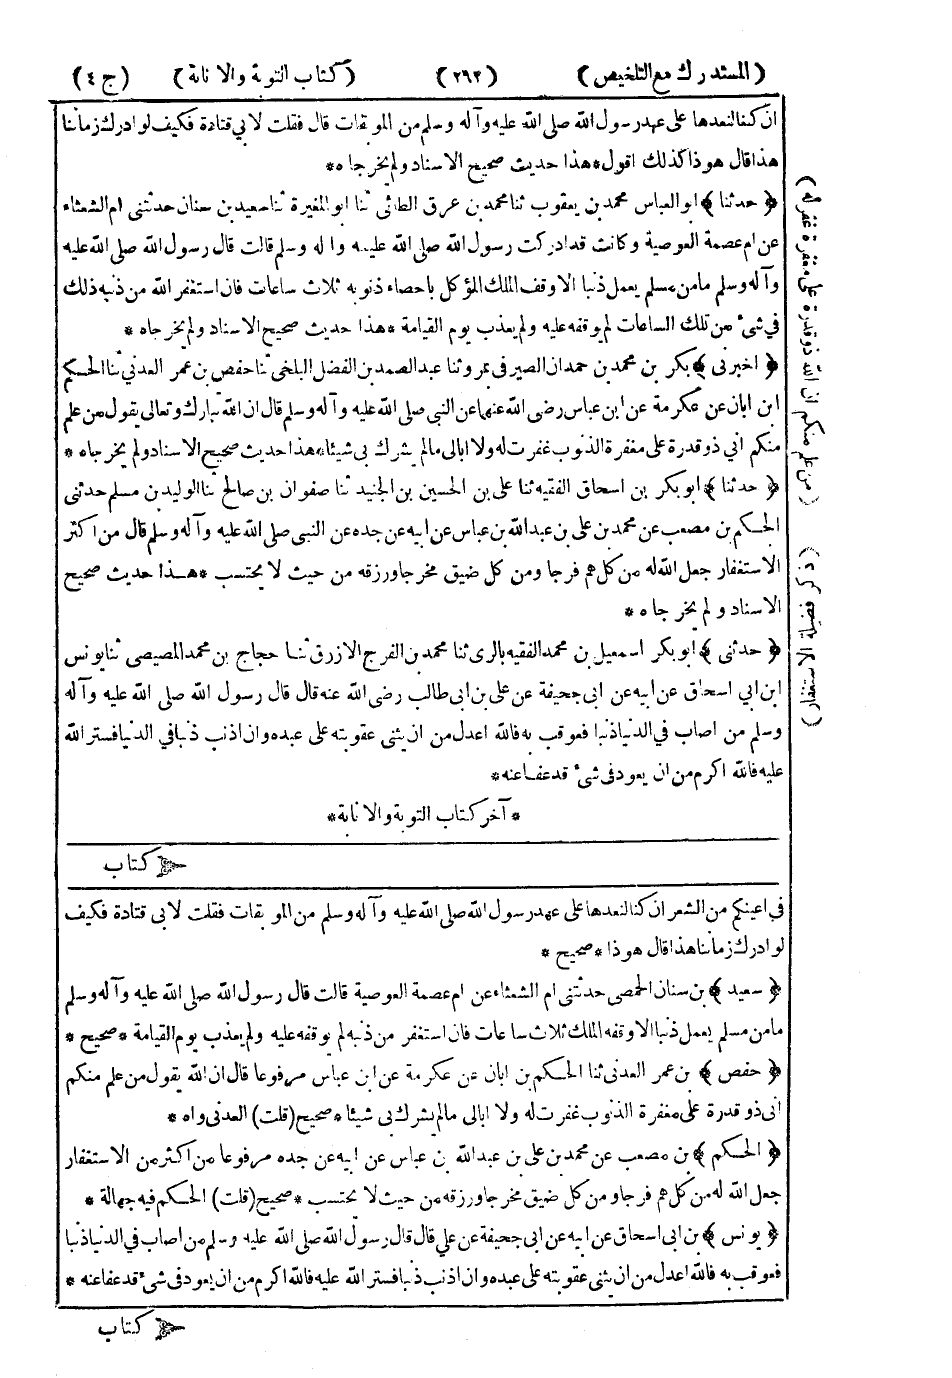 (المستدرك مع التلخيص) (٢٦٢) (كتاب التوبة والانابة) (ج ٤)
ان كنا لنعدها على عهد رسول الله صلى الله عليه وآله وسلم من الموبقات قال فقلت لابي قتادة فكيف لو ادرك زماننا
هذا قال هو ذا كذلك اقول * هذا حديث صحيح الاسناد ولم يخرجاه *
﴿ حدثنا ﴾ ابو العباس محمد بن يعقوب ثنا محمد بن عوف الطائي ثنا ابو المغيرة ثنا سعيد بن سنان حدثتنى ام الشعثاء
عن ام عصمة العوصية وكانت قد ادركت رسول الله صلى الله عليه وآله وسلم قالت قال رسول الله صلى الله عليه
وآله وسلم ما من مسلم يعمل ذنبا الا وقف الملك المؤكل باحصاء ذنوبه ثلاث ساعات فان استغفر الله من ذنبه ذلك
في شيء من تلك الساعات لم يوقفه عليه ولم يعذب يوم القيامة * هذا حديث صحيح الاسناد ولم يخرجاه *
﴿ اخبرنى ﴾ بكر بن محمد بن حمدان الصيرفى بمرو ثنا عبد الصمد بن الفضل البلخى ثنا حفص بن عمر العدني ثنا الحكم
ابن ابان عن عكرمة عن ابن عباس رضى الله عنهما عن النبى صلى الله عليه وآله وسلم قال ان الله تبارك وتعالى يقول من علم
منكم اني ذو قدرة على مغفرة الذنوب غفرت له ولا ابالى ما لم يشرك بى شيئا * هذا حديث صحيح الاسناد ولم يخرجاه *
﴿ حدثنا ﴾ ابو بكر بن اسحاق الفقيه ثنا على بن الحسين بن الجنيد ثنا صفوان بن صالح ثنا الوليد بن مسلم حدثنى
الحكم بن مصعب عن محمد بن على بن عبد الله بن عباس عن ابيه عن جده عن النبى صلى الله عليه وآله وسلم قال من اكثر
الاستغفار جعل الله له من كل هم فرجا ومن كل ضيق مخرجا ورزقه من حيث لا يحتسب * هذا حديث صحيح
الاسناد ولم يخرجاه *
﴿ حدثنى ﴾ ابو بكر اسمعيل بن محمد الفقيه بالرى ثنا محمد بن الفرج الازرق ثنا حجاج بن محمد المصيصى ثنا يونس
ابن ابي اسحاق عن ابيه عن ابى جحيفة عن على بن ابى طالب رضى الله عنه قال قال رسول الله صلى الله عليه وآله
وسلم من اصاب في الدنيا ذنبا فعوقب به فالله اعدل من ان يثنى عقوبته على عبده وان اذنب ذنبا في الدنيا فستر الله
عليه فالله اكرم من ان يعود فى شئ قد عفا عنه *
* آخر كتاب التوبة والانابة *
كتاب
في اعينكم من الشعر ان كنا لنعدها على عهد رسول الله صلى الله عليه وآله وسلم من الموبقات فقلت لابى قتادة فكيف
لو ادرك زماننا هذا قال هو ذا * صحيح *
﴿ سعيد ﴾ بن سنان الحمصى حدثتنى ام الشعثاء عن ام عصمة العوصية قالت قال رسول الله صلى الله عليه وآله وسلم
ما من مسلم يعمل ذنبا الا وقفه الملك ثلاث ساعات فان استغفر من ذنبه لم يوقفه عليه ولم يعذب يوم القيامة * صحيح *
﴿ حفص ﴾ بن عمر العدنى ثنا الحكم بن ابان عن عكرمة عن ابن عباس مرفوعا قال ان الله يقول من علم منكم
انى ذو قدرة على مغفرة الذنوب غفرت له ولا ابالى ما لم يشرك بى شيئا * صحيح (قلت) العدنى واه *
﴿ الحكم ﴾ بن مصعب عن محمد بن على بن عبد الله بن عباس عن ابيه عن جده مرفوعا من اكثر من الاستغفار
جعل الله له من كل هم فرجا ومن كل ضيق مخرجا ورزقه من حيث لا يحتسب * صحيح (قلت) الحكم فيه جهالة *
﴿ يونس ﴾ بن ابى اسحاق عن ابيه عن ابى جحيفة عن علي قال قال رسول الله صلى الله عليه وسلم من اصاب في الدنيا ذنبا
فعوقب به فالله اعدل من ان يثنى عقوبته على عبده وان اذنب ذنبا فستر الله عليه فالله اكرم من ان يعود فى شئ قد عفا عنه *
كتاب
(من علم منكم ان الله ذو قدرة على مغفرة غفر له)